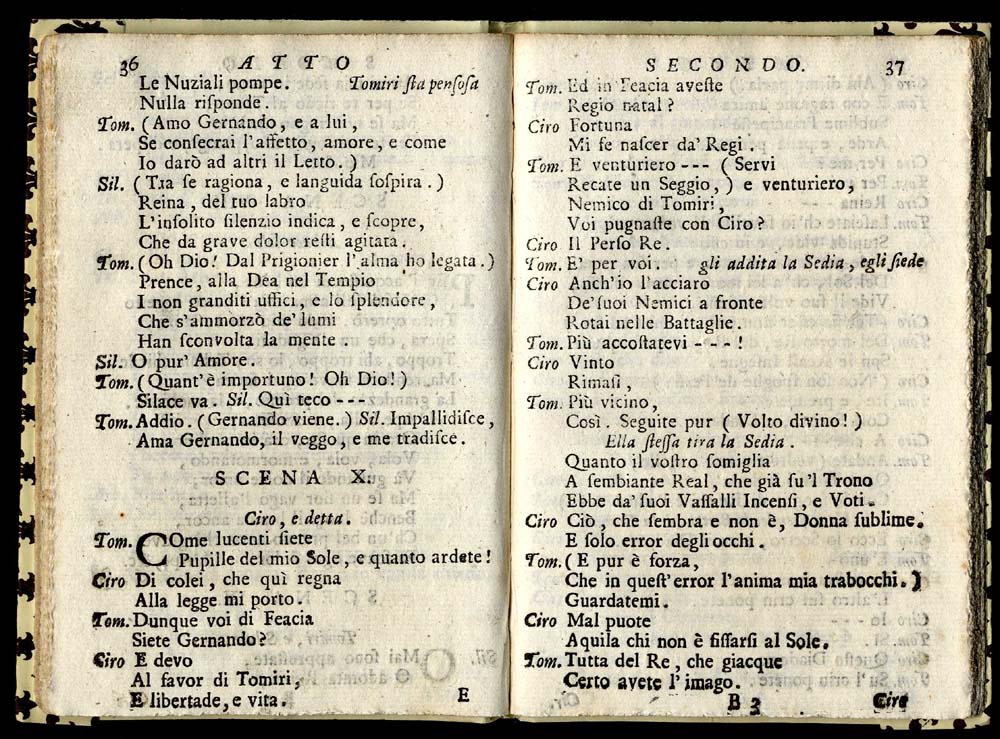 36 ATTO
Le Nuziali pompe. Tomiri ſta penſoſa
Nulla riſponde.
Tom. (Amo Gernando, e a lui,
Se conſecrai l'affetto, amore, e come
Io darò ad altri il Letto.)
Sil. (Tra ſe ragiona, e languida ſoſpira.)
Reina, del tuo labro
L'inſolito ſilenzio indica, e ſcopre,
Che da grave dolor reſti agitata.
Tom. (Oh Dio! Dal Prigionier l'alma ho legata.)
Prence, alla Dea nel Tempio
I non granditi uffici, e lo ſplendore,
Che s'ammorzò de' lumi
Han ſconvolta la mente.
Sil. O pur' Amore.
Tom. (Quant'è importuno! Oh Dio!)
Silace va. Sil. Quì teco ---
Tom. Addio. (Gernando viene.) Sil. Impallidiſce,
Ama Gernando, il veggo, e me tradiſce.
SCENA X.
Ciro, e detta.
Tom. COme lucenti ſiete
Pupille del mio Sole, e quanto ardete!
Ciro Di colei, che quì regna
Alla legge mi porto.
Tom. Dunque voi di Feacia
Siete Gernando?
Ciro E devo
Al favor di Tomiri,
E libertade, e vita.
E
SECONDO. 37
Tom. Ed in Feacia aveſte
Regio natal?
Ciro Fortuna
Mi fe naſcer da' Regi.
Tom. E venturiero --- (Servi
Recate un Seggio,) e venturiero,
Nemico di Tomiri,
Voi pugnaſte con Ciro?
Ciro Il Perſo Re.
Tom. E' per voi. gli addita la Sedia, egli ſiede
Ciro Anch'io l'acciaro
De' ſuoi Nemici a fronte
Rotai nelle Battaglie.
Tom. Più accoſtatevi ---!
Ciro Vinto
Rimaſi,
Tom. Più vicino,
Così. Seguite pur (Volto divino!)
Ella ſteſſa tira la Sedia.
Quanto il voſtro ſomiglia
A ſembiante Real, che già ſu'l Trono
Ebbe da' ſuoi Vaſſalli Incenſi, e Voti.
Ciro Ciò, che ſembra e non è, Donna ſublime.
E ſolo error degli occhi.
Tom. (E pur è forza,
Che in queſt'error l'anima mia trabocchi.)
Guardatemi.
Ciro Mal puote
Aquila chi non è fiſſarſi al Sole.
Tom. Tutta del Re, che giacque
Certo avete l'imago.
B 3 Ciro